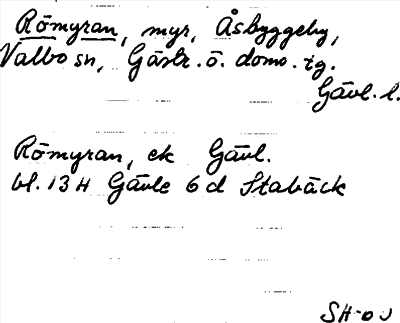 Römyran, myr, Åsbyggeby,
Valbo sn, Gästr. ö. doms. tg.
Gävl. l.
Römyran, ek Gävl.
bl. 13 H Gävle 6 d Stabäck